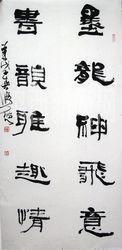 墨龍神飛意
書韻雅趣情